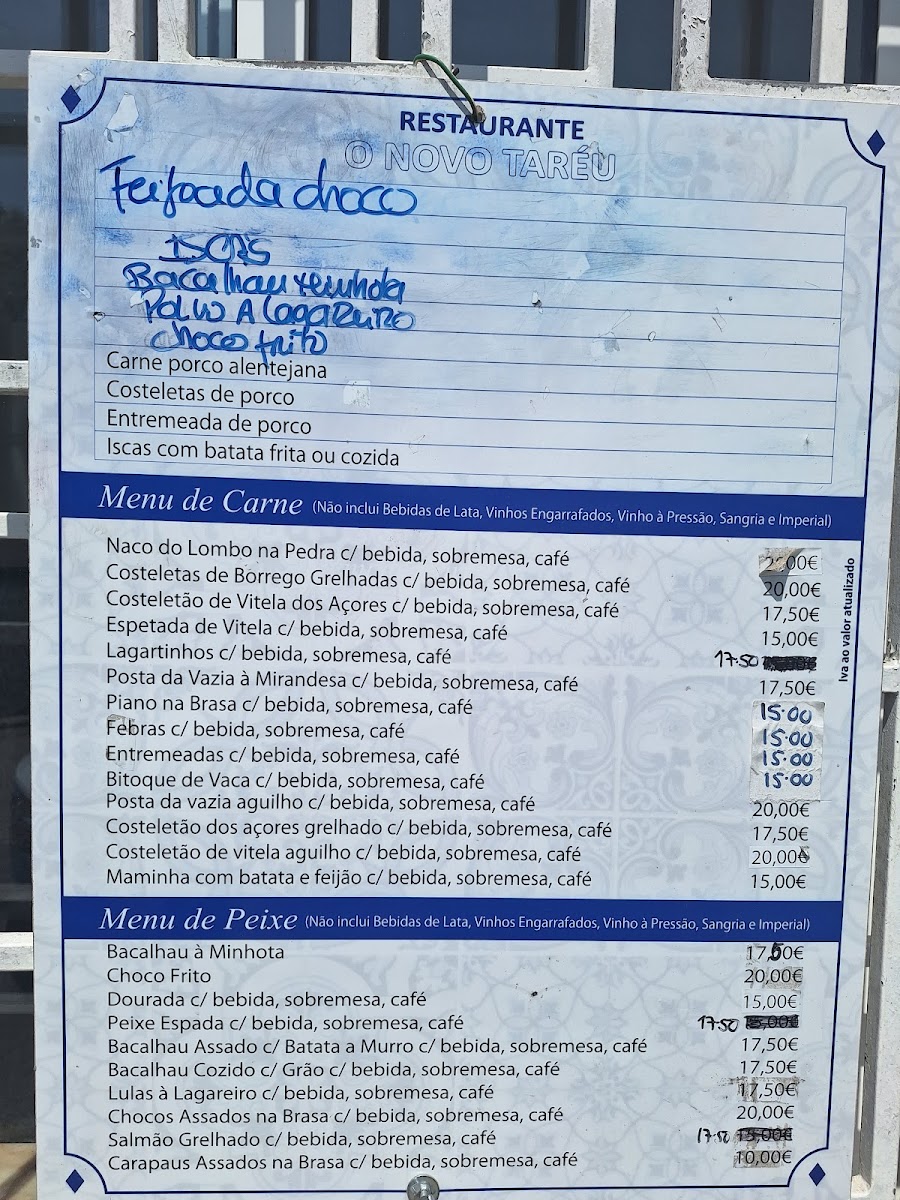 RESTAURANTE
O NOVO TARÉU
Feijoada choco
ISCAS
Bacalhau
Polvo A Lagareiro
choco frito
Carne porco alentejana
Costeletas de porco
Entremeada de porco
Iscas com batata frita ou cozida
Menu de Carne (Não inclui Bebidas de Lata, Vinhos Engarrafados, Vinho à Pressão, Sangria e Imperial)
Naco do Lombo na Pedra c/ bebida, sobremesa, café
Costeletas de Borrego Grelhadas c/ bebida, sobremesa, café 20,00€
Costeletão de Vitela dos Açores c/ bebida, sobremesa, café 17,50€
Espetada de Vitela c/ bebida, sobremesa, café 15,00€
Lagartinhos c/ bebida, sobremesa, café 17.50
Posta da Vazia à Mirandesa c/ bebida, sobremesa, café 17,50€
Piano na Brasa c/ bebida, sobremesa, café 15.00
Febras c/ bebida, sobremesa, café 15.00
Entremeadas c/ bebida, sobremesa, café 15.00
Bitoque de Vaca c/ bebida, sobremesa, café 15.00
Posta da vazia aguilho c/ bebida, sobremesa, café 20,00€
Costeletão dos açores grelhado c/ bebida, sobremesa, café 17,50€
Costeletão de vitela aguilho c/ bebida, sobremesa, café 20,00€
Maminha com batata e feijão c/ bebida, sobremesa, café 15,00€
Iva ao valor atualizado
Menu de Peixe (Não inclui Bebidas de Lata, Vinhos Engarrafados, Vinho à Pressão, Sangria e Imperial)
Bacalhau à Minhota 17,50€
Choco Frito 20,00€
Dourada c/ bebida, sobremesa, café 15,00€
Peixe Espada c/ bebida, sobremesa, café 17.50 15,00€
Bacalhau Assado c/ Batata a Murro c/ bebida, sobremesa, café 17,50€
Bacalhau Cozido c/ Grão c/ bebida, sobremesa, café 17,50€
Lulas à Lagareiro c/ bebida, sobremesa, café 17,50€
Chocos Assados na Brasa c/ bebida, sobremesa, café 20,00€
Salmão Grelhado c/ bebida, sobremesa, café 17.50 15,00€
Carapaus Assados na Brasa c/ bebida, sobremesa, café 10,00€